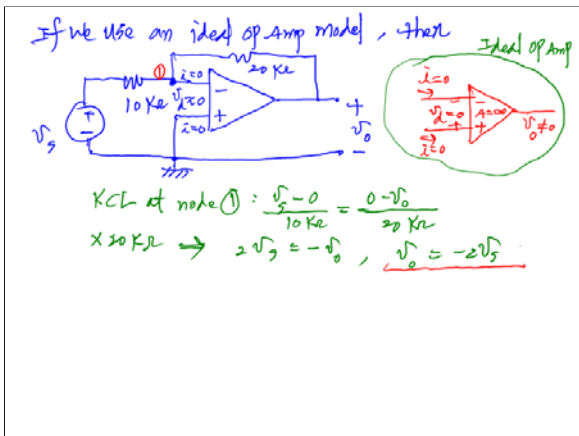 If we use an ideal op Amp model, then
Ideal Op Amp
①
i=0
20 KΩ
10 KΩ
v_d≈0
i=0
v_s
+
−
−
+
+
v_o
−
i=0
v_d=0
−
+
−
+
A=∞
v_o≠0
i=0
KCL at node ① : (v_s − 0)/10 KΩ = (0 − v_o)/20 KΩ
×20 KΩ → 2v_s = −v_o , v_o = −2v_s